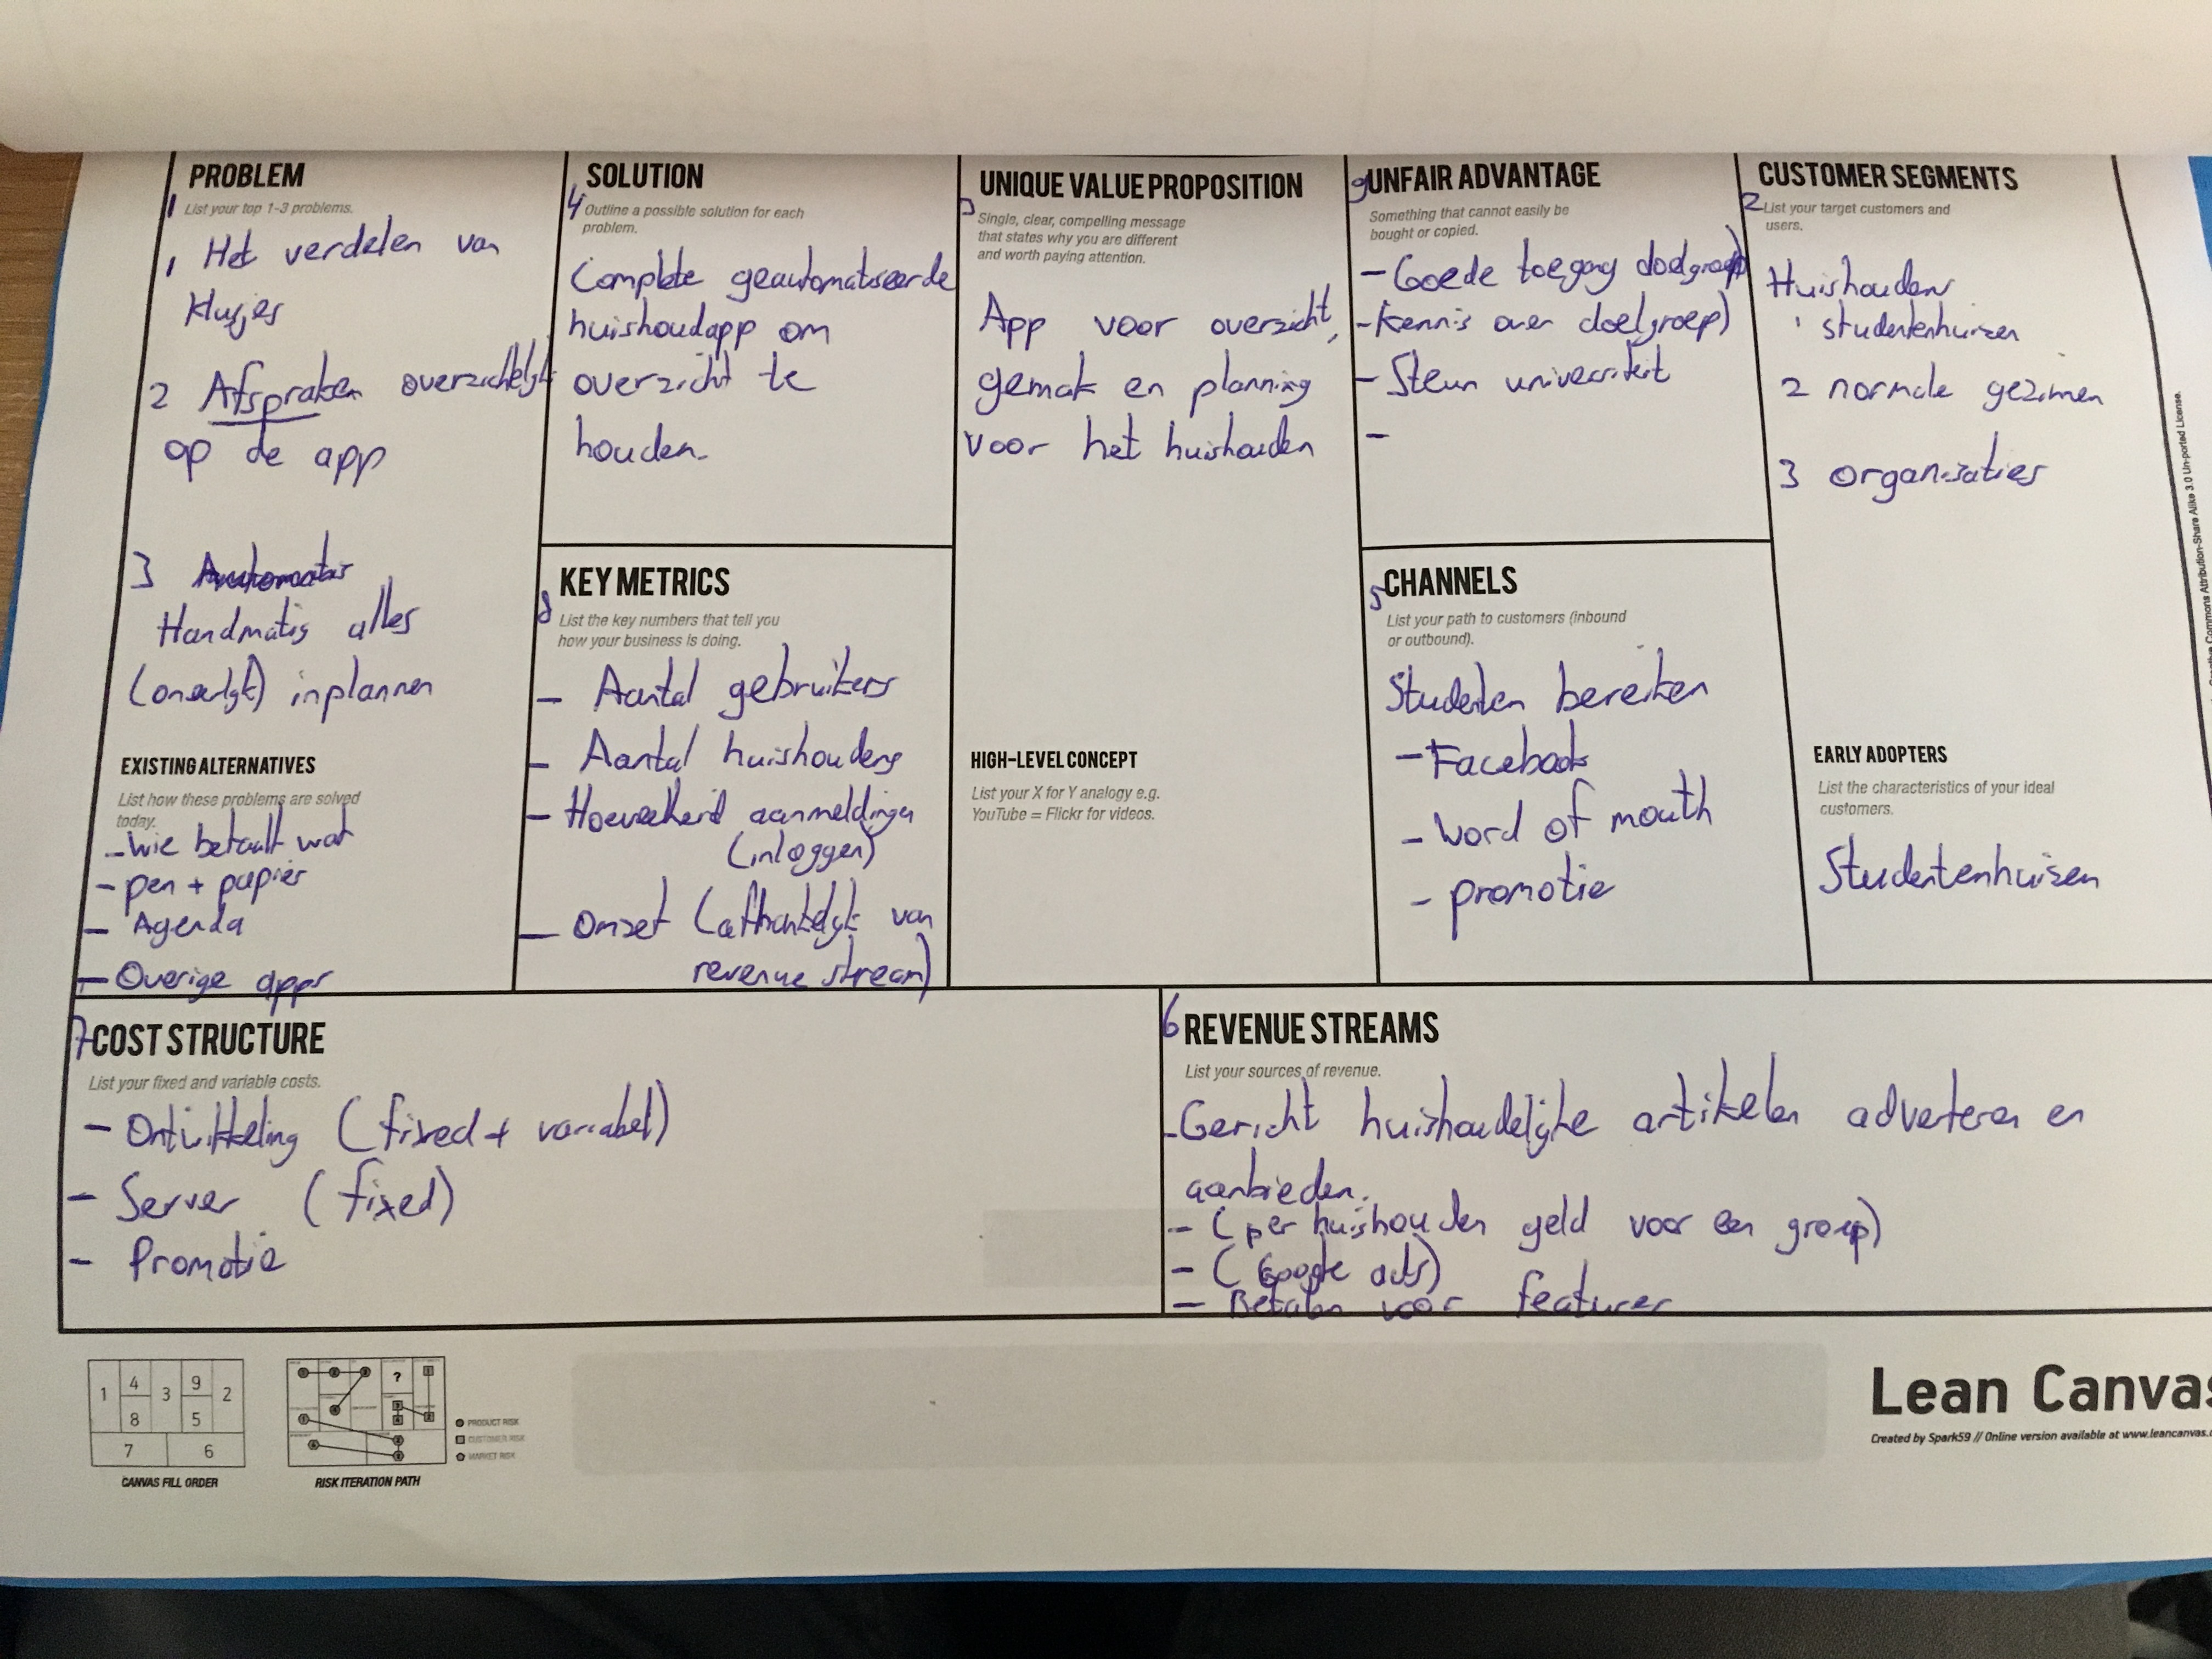 PROBLEM
1 List your top 1-3 problems.
1 Het verdelen van
klusjes
2 Afspraken overzichtelijk
op de app
3
Handmatig alles
(oneerlijk) inplannen
EXISTING ALTERNATIVES
List how these problems are solved
today.
- Wie betaalt wat
- pen + papier
- Agenda
- Overige apps
SOLUTION
4 Outline a possible solution for each
problem.
Complete geautomatiseerde
huishoudapp om
overzicht te
houden
KEY METRICS
8 List the key numbers that tell you
how your business is doing.
- Aantal gebruikers
- Aantal huishoudens
- Hoeveelheid aanmeldingen
(inloggen)
- Omzet (afhankelijk van
revenue stream)
UNIQUE VALUE PROPOSITION
3 Single, clear, compelling message
that states why you are different
and worth paying attention.
App voor overzicht,
gemak en planning
voor het huishouden
HIGH-LEVEL CONCEPT
List your X for Y analogy e.g.
YouTube = Flickr for videos.
9 UNFAIR ADVANTAGE
Something that cannot easily be
bought or copied.
- Goede toegang doelgroep)
- kennis over doelgroep)
- Steun universiteit
-
CHANNELS
5 List your path to customers (inbound
or outbound).
Studenten bereiken
- Facebook
- Word of mouth
- promotie
CUSTOMER SEGMENTS
2 List your target customers and
users.
Huishouden
1 studentenhuizen
2 normale gezinnen
3 organisaties
EARLY ADOPTERS
List the characteristics of your ideal
customers.
Studentenhuizen
7 COST STRUCTURE
List your fixed and variable costs.
- Ontwikkeling (fixed + variabel)
- Server (fixed)
- Promotie
6 REVENUE STREAMS
List your sources of revenue.
- Gericht huishoudelijke artikelen adverteren en
aanbieden.
- (per huishouden geld voor een groep)
- (Google ads)
- Betalen voor features
1 4 3 9 2
8 5
7 6
CANVAS FILL ORDER
RISK ITERATION PATH
PRODUCT RISK
CUSTOMER RISK
MARKET RISK
Lean Canvas
Created by Spark59 // Online version available at www.leancanvas.
Commons Attribution-Share Alike 3.0 Un-ported License.